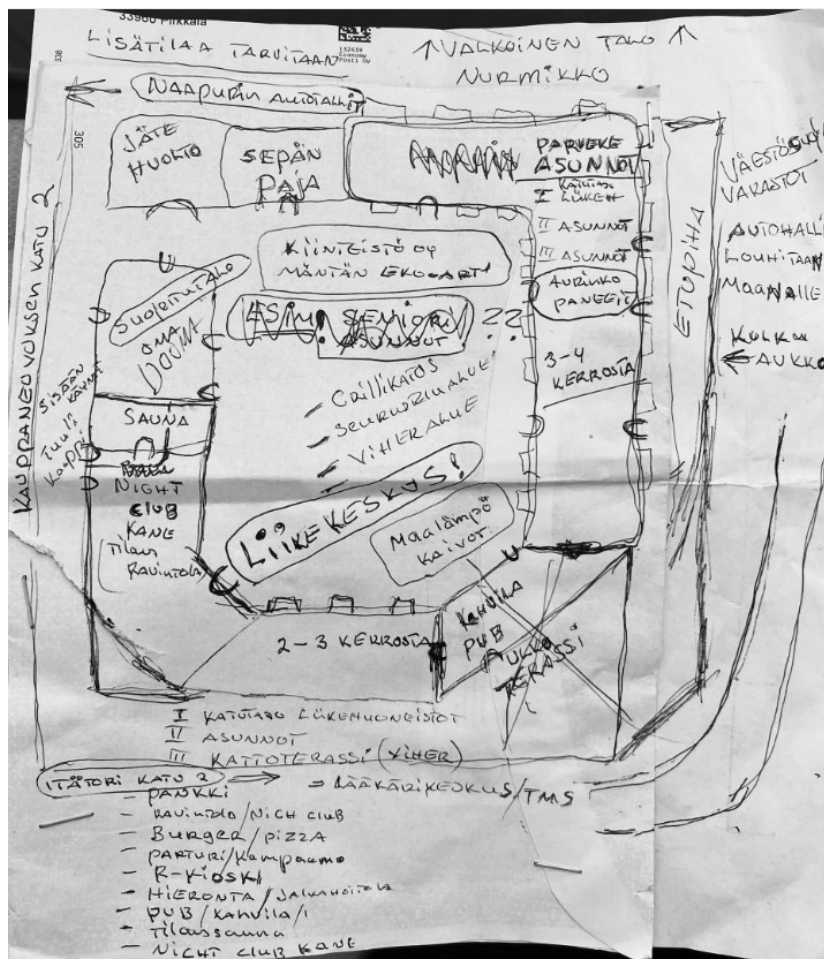 33960 Pirkkala
LISÄTILAA TARVITAAN
Economy
Posti Oy
↑ VALKOINEN TALO ↑
NURMIKKO
NAAPURIN AUTOTALLIT
305
JÄTE
HUOLTO
SEPÄN
PAJA
PARVEKE
ASUNNOT
KATUTASO
I LIIKEH
II ASUNNOT
III ASUNNOT
AURINKO
PANEELIT
3-4
KERROSTA
ETUPIHA
VARASTOT
AUTOHALLI
LOUHITAAN
MAAN ALLE
KULKU
AUKKO
KAUPPANEUVOKSEN KATU 2
KIINTEISTÖ OY
MÄNTÄN EKO-ART!
SUOJELTU TALO
OMA
ESIM! SENIORI ??
ASUNNOT
- GRILLIKATOS
- SEURUSTELUALUE
- VIHERALUE
SISÄÄN
KÄYNNIT
TUULI
KAAPPI
SAUNA
NIGHT
CLUB
KANE
Tilaus
Ravintola
LIIKEKESKUS!
Maalämpö
Kaivot
2-3 KERROSTA
KAHVILA
PUB
ULKO
TERASSI
I KATUTASO LIIKEHUONEISTOT
II ASUNNOT
III KATTOTERASSI (VIHER)
ITÄTORI KATU 2 ⇒ - LÄÄKÄRIKESKUS/TMS
- PANKKI
- Ravintola/NIGH CLUB
- Burger/pizza
- PARTURI/Kampaamo
- R-KIOSKI
- HIERONTA/JALKAHOITOLA
- PUB/Kahvila/
- Tilaussauna
- NIGHT CLUB KANE